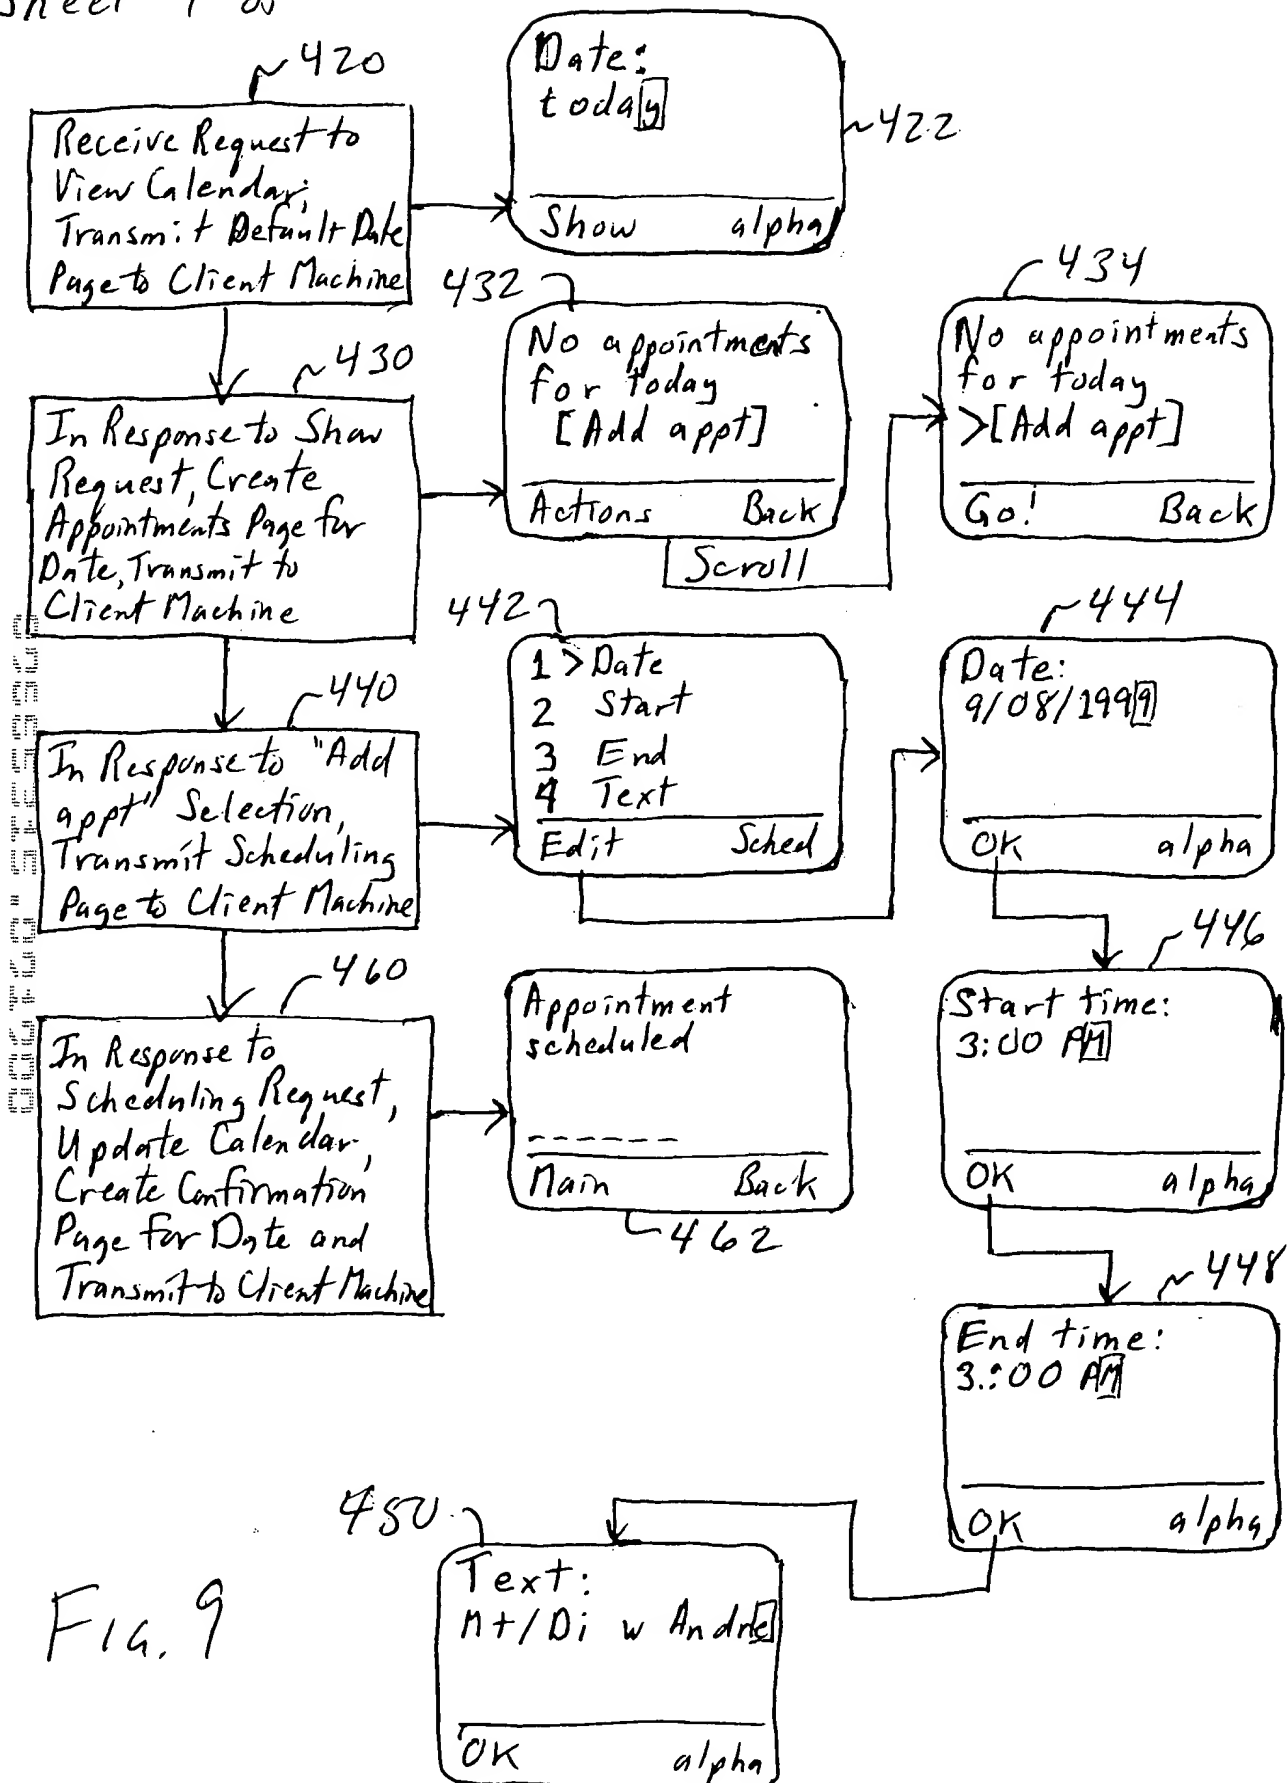 420
Receive Request to
View Calendar;
Transmit Default Date
Page to Client Machine
Date:
today
Show alpha
422
430
In Response to Show
Request, Create
Appointments Page for
Date, Transmit to
Client Machine
432
No appointments
for today
[Add appt]
Actions Back
Scroll
434
No appointments
for today
>[Add appt]
Go! Back
440
In Response to "Add
appt" Selection,
Transmit Scheduling
Page to Client Machine
442
1 >Date
2 Start
3 End
4 Text
Edit Sched
444
Date:
9/08/1999
OK alpha
446
Start time:
3:00 AM
OK alpha
448
End time:
3:00 AM
OK alpha
450
Text:
Mt/Di w Andre
OK alpha
460
In Response to
Scheduling Request,
Update Calendar,
Create Confirmation
Page for Date and
Transmit to Client Machine
Appointment
scheduled
------
Main Back
462
Fig. 9